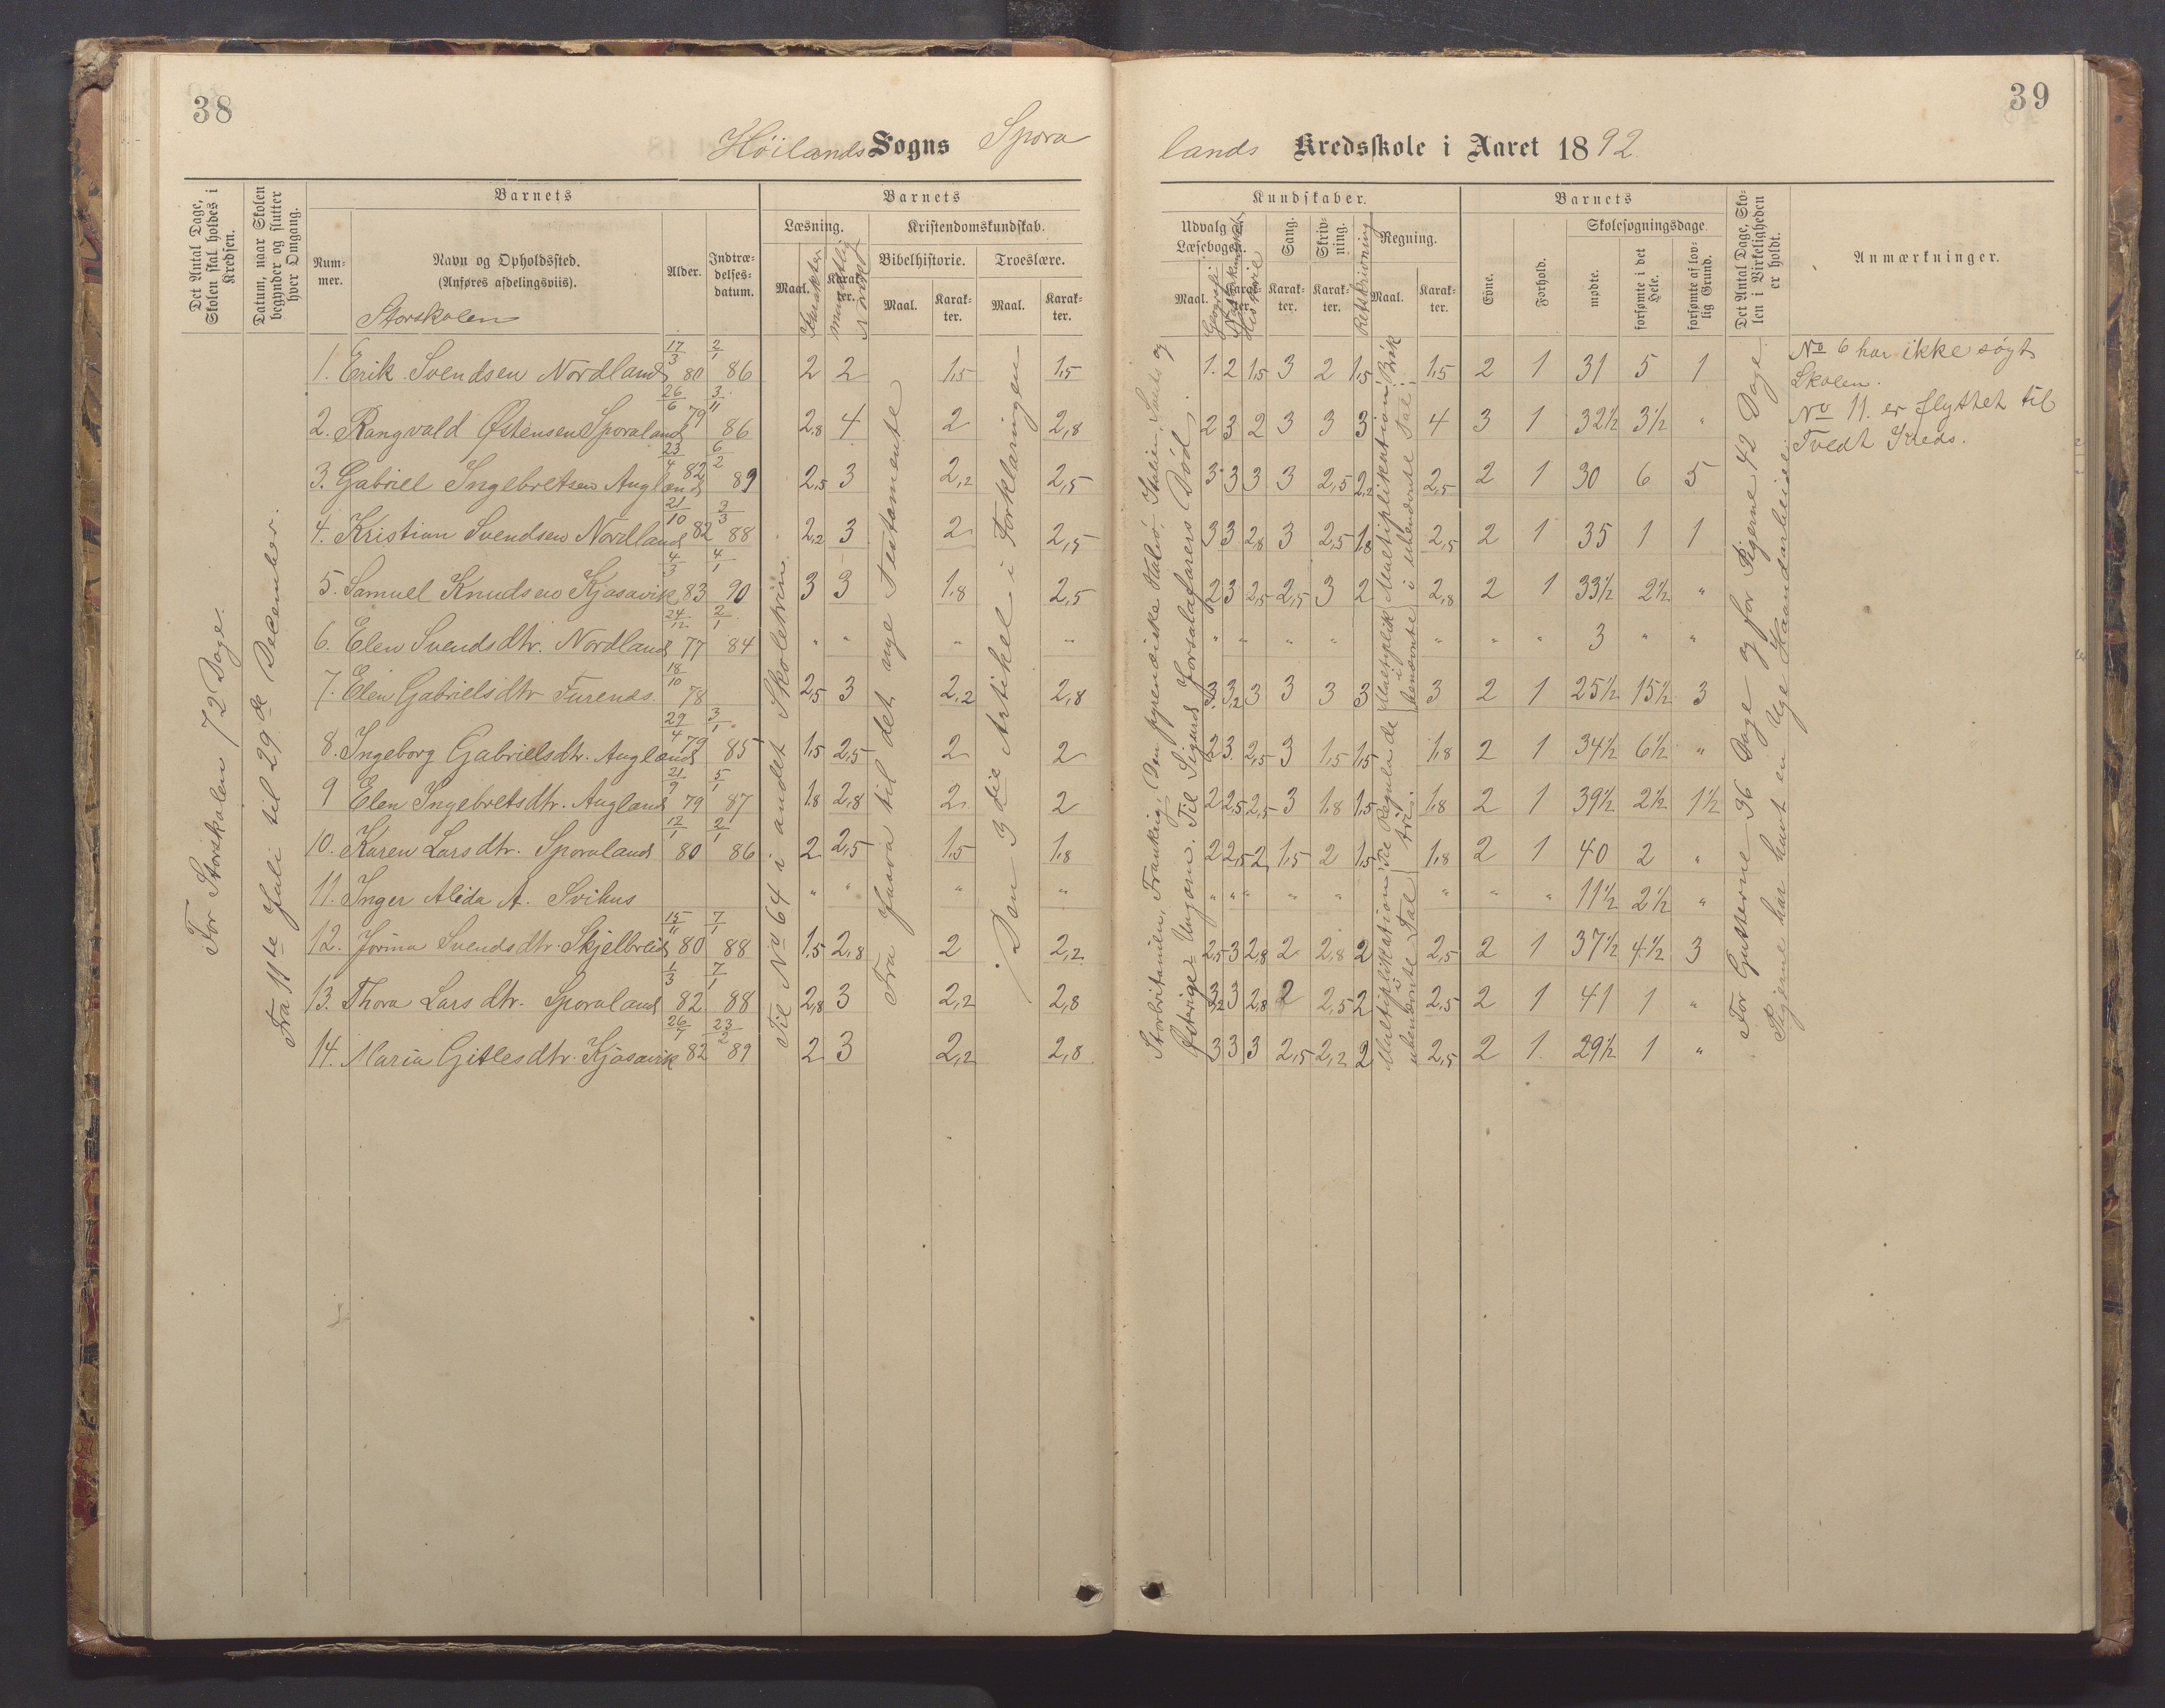 38
39
Höilands Sogns Spora
lands Kredsskole i Aaret 1892.
Det Antal Dage, Skolen skal holdes i Kredsen.
Datum, naar Skolen begynder og slutter hver Omgang.
Barnets
Num-mer.
Navn og Opholdssted.
(Anføres afdelingsviis).
Storskolen
Alder.
Indtræ-delses-datum.
Barnets
Læsning.
Maal.
Karakter
Karak-ter.
mundtlig Norsk
Kristendomskundskab.
Bibelhistorie.
Troeslære.
Maal.
Karak-ter.
Maal.
Karak-ter.
Kundskaber.
Udvalg af Læsebogen.
Maal.
Karak-ter.
Geografi
Naturkundskab
Historie
Sang.
Karak-ter.
Skriv-ning.
Karak-ter.
Retskrivning
Regning.
Maal.
Karak-ter.
Barnets
Evne.
Forhold.
Skolesøgningsdage
mødte.
forsømte i det Hele.
forsømte af lov-lig Grund.
Det Antal Dage, Sko-len i Virkeligheden er holdt.
Anmærkninger.
For Storskolen 72 Dage.
Fra 11te Juli til 29de December.
Til No 64 i andet Skoletrin.
Fra Juava til det nye Testamente
Den 3die Artikel i Forklaringen
Storbritanien, Frankrig, Den pyrenæiske Halvö, Italien, Schweiz og
Østerige-Ungarn. Til Sigurd Jorsalafarers Död.
Multiplikation i ubenævnte Tal
Til Regula de tri.
Multiplik i benævnte
Multiplikation i ubenævnte Tal
Bråk
For Gutterne 36 Dage og for Pigerne 42 Dage.
Pigerne har havt en Uge Haandarbeide.
1. Erik Svendsen Nordland 17/3 80 2/1 86 2 2 1,5 1,5 1. 2 1,5 3 2 1,5 1,5 2 1 31 5 1
2. Rangvald Østensen Sporaland 26/6 79 3/11 86 2,8 4 2 2,8 2 3 2 3 3 3 4 3 1 32½ 3½ "
3. Gabriel Ingebretsen Augland 23/4 82 6/2 89 2,5 3 2,2 2,5 3 3 3 3 2,5 2,2 2,5 2 1 30 6 5
4. Kristian Svendsen Nordland 21/10 82 3/3 88 2,2 3 2 2,5 3 3 2,8 3 2,5 1,8 2,5 2 1 35 1 1
5. Samuel Knudsen Kjosavik 4/3 83 4/1 90 3 3 1,8 2,5 2 3 2,5 2,5 3 2 2,8 2 1 33½ 2½ "
6. Elen Svendsdtr. Nordland 24/12 77 2/1 84 " " " " " " " " " " " " 3 " "
7. Elen Gabrielsdtr Furenes. 18/10 78 2,5 3 2,2 2,8 3 3,2 3 3 3 3 3 2 1 25½ 15½ 3
8. Ingeborg Gabrielsdtr. Augland 29/4 79 3/1 85 1,5 2,5 2 2 2 3 2,5 3 1,5 1,5 1,8 2 1 34½ 6½ "
9 Elen Ingebretsdtr. Augland 21/9 79 5/1 87 1,8 2,8 2 2 2 2,5 2,5 3 1,8 1,5 1,8 2 1 39½ 2½ 1½
10. Karen Larsdtr. Sporaland 12/1 80 2/1 86 2 2,5 1,5 1,8 2 2,5 2 1,5 2 1,5 1,8 2 1 40 2 "
11. Inger Alida A. Svihus " " " " " " " " " " " " 11½ 2½ "
12. Jorina Svendsdtr. Skjelbreid 15/11 80 7/1 88 1,5 2,8 2 2,2 2,5 3 2,8 2 2,8 2 2,5 2 1 37½ 4½ 3
13. Thora Larsdtr. Sporaland 1/3 82 7/1 88 2,8 3 2,2 2,8 3,2 3 2,8 2 2,5 2 2,5 2 1 41 1 "
14. Maria Gitlesdtr. Kjosavik 26/7 82 23/2 89 2 3 2,2 2,8 3 3 3 2,5 2,2 2 2,5 2 1 29½ 1 "
No 6 har ikke søgt
Skolen.
No 11. er flyttet til
Tvedt Kreds.